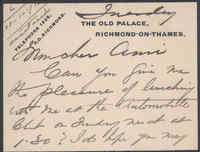 Tuesday
THE OLD PALACE,
RICHMOND-ON-THAMES.
TELEPHONE
P.O. RICHMOND.
Mon cher Ami
Can you give me
the pleasure of lunching
with me at the Automobile
Club on Sunday next at
1.30? I do hope you may